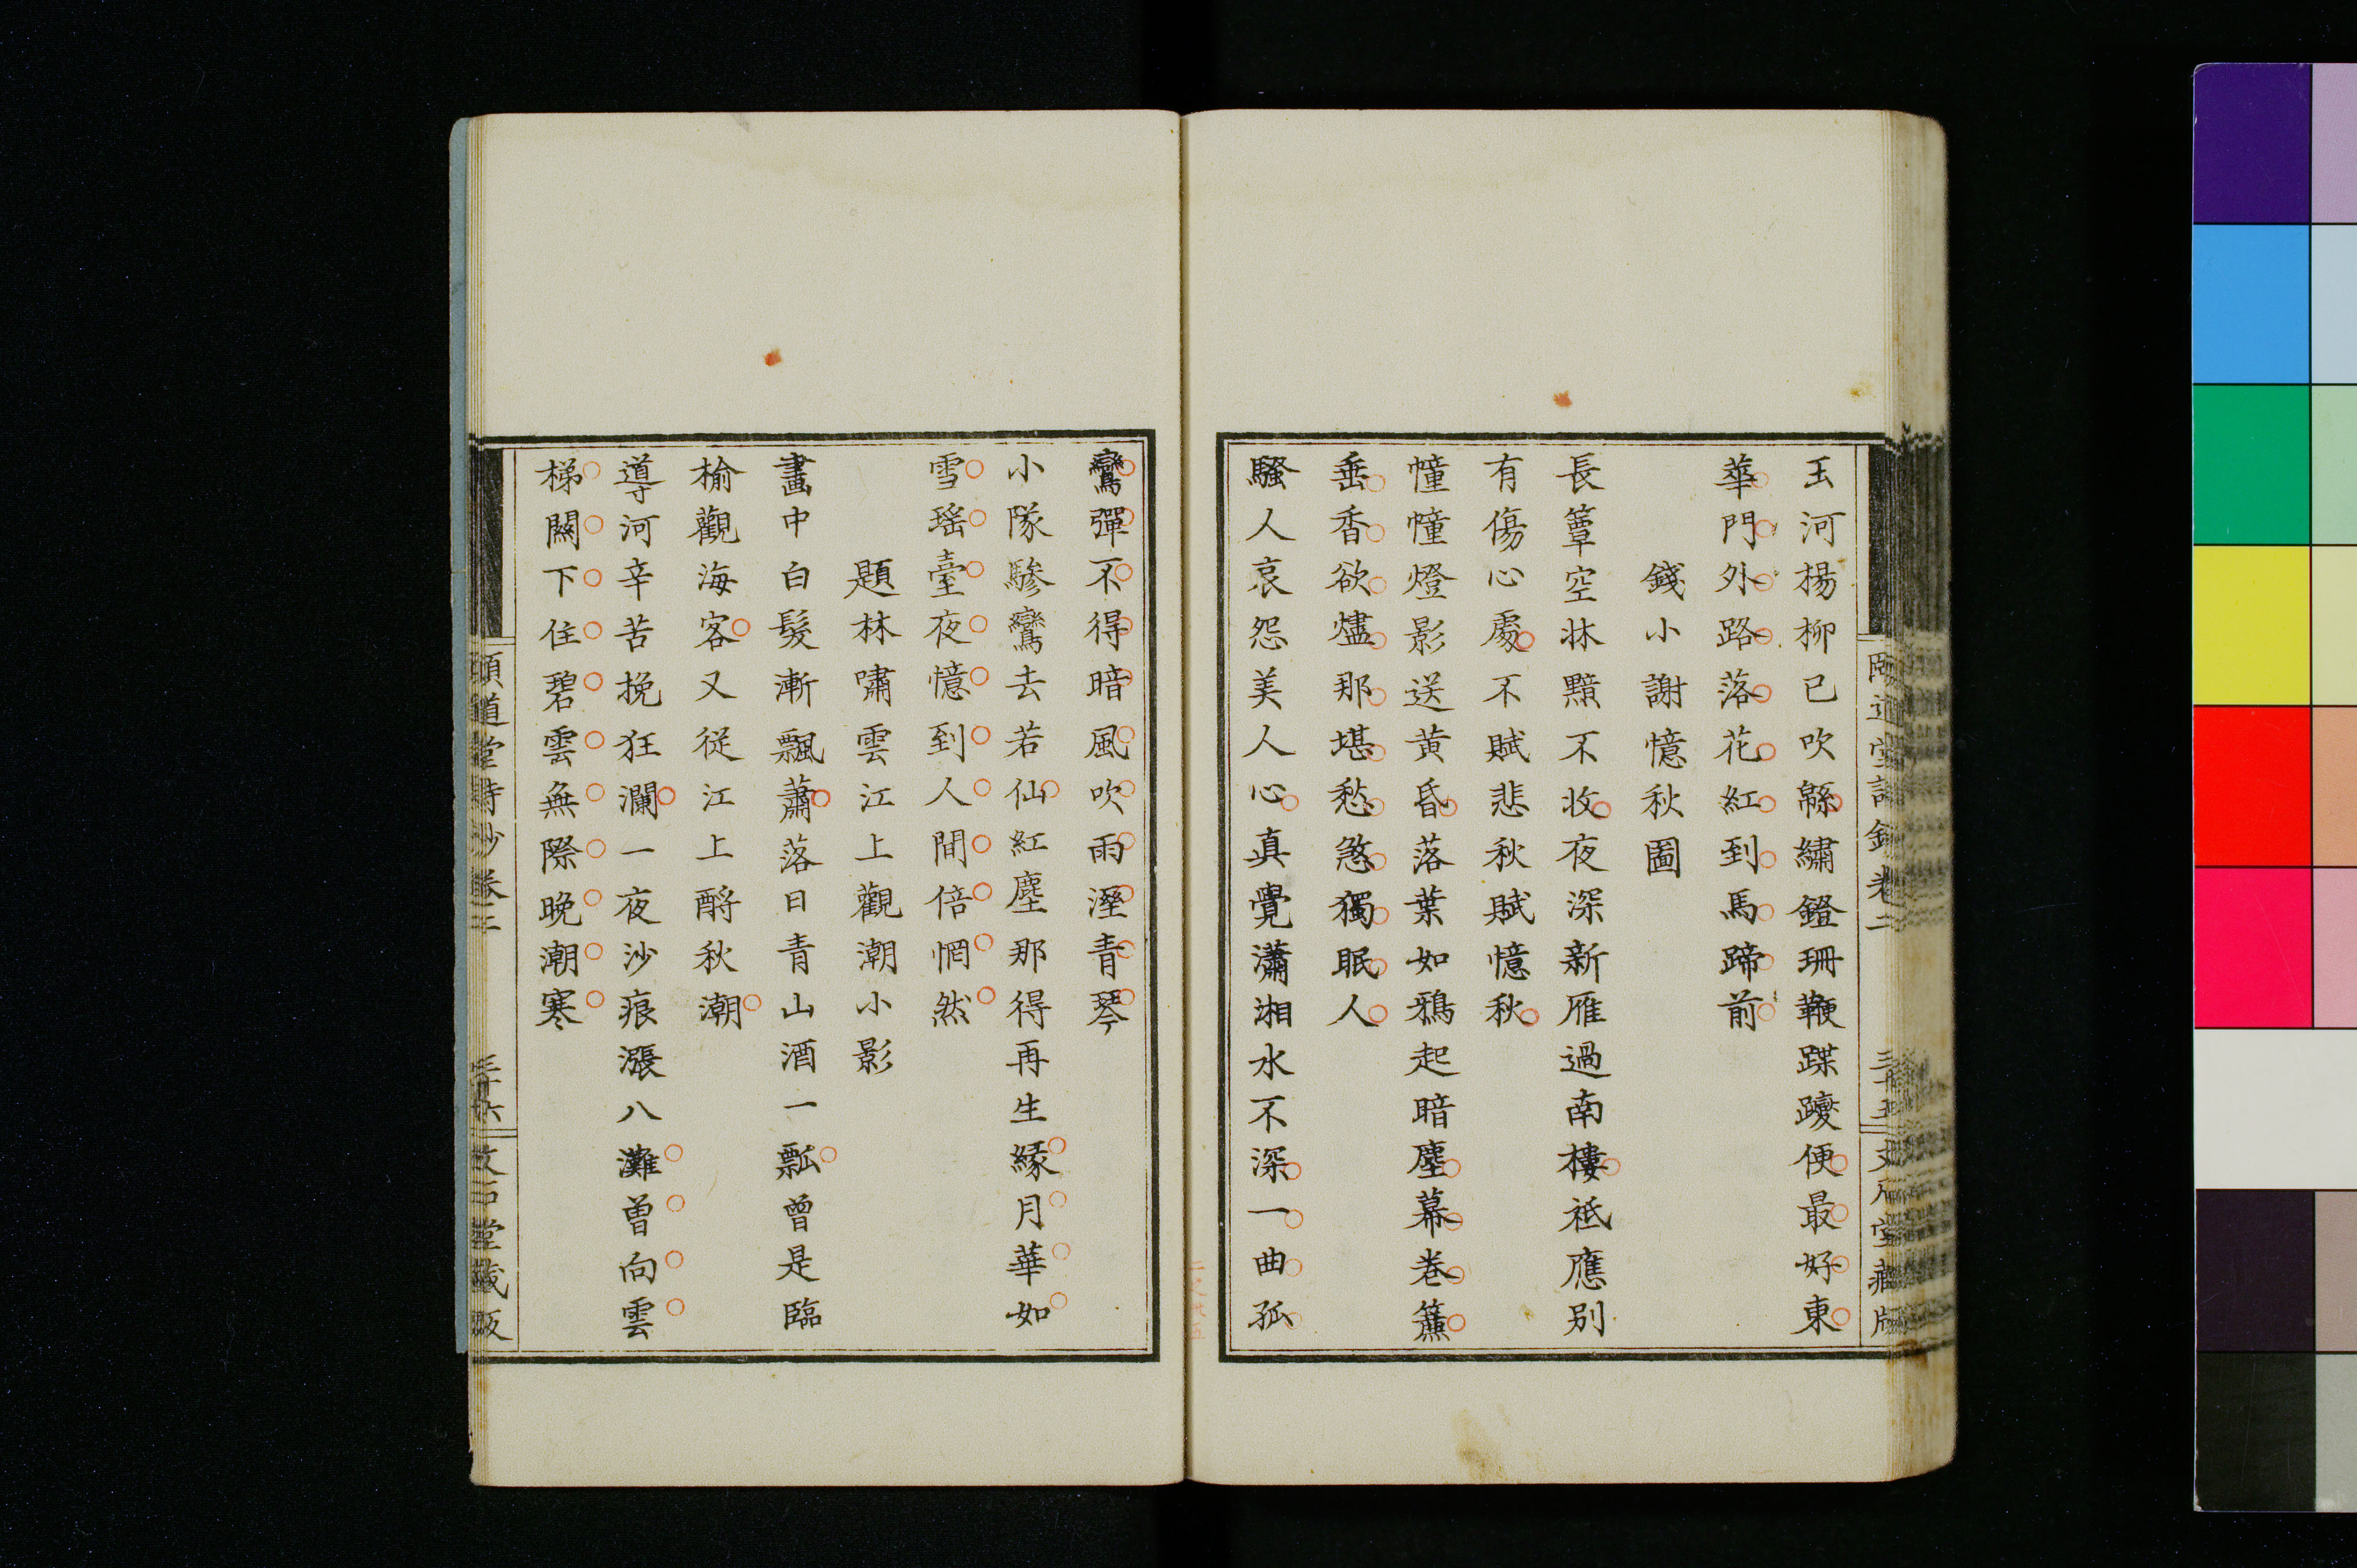 玉河楊柳已吹緜繡鐙珊鞭蹀躞便最好東
華門外路落花紅到馬蹄前
錢小謝憶秋圖
長簟空牀黯不收夜深新雁過南樓祗應别
有傷心處不賦悲秋賦憶秋
幢幢燈影送黃昏落葉如鴉起暗塵幕卷簾
垂香欲燼那堪愁煞獨眠人
騷人哀怨美人心真覺瀟湘水不深一曲孤
鸞彈不得暗風吹雨溼青琴
小隊驂鸞去若仙紅塵那得再生緣月華如
雪瑤臺夜憶到人間倍惘然
題林嘯雲江上觀潮小影
畫中白髮漸飄蕭落日青山酒一瓢曾是臨
榆觀海客又從江上酹秋潮
導河辛苦挽狂瀾一夜沙痕漲八灘曾向雲
梯關下住碧雲無際晚潮寒
頤道堂詩鈔卷二
三十六
文石堂藏版